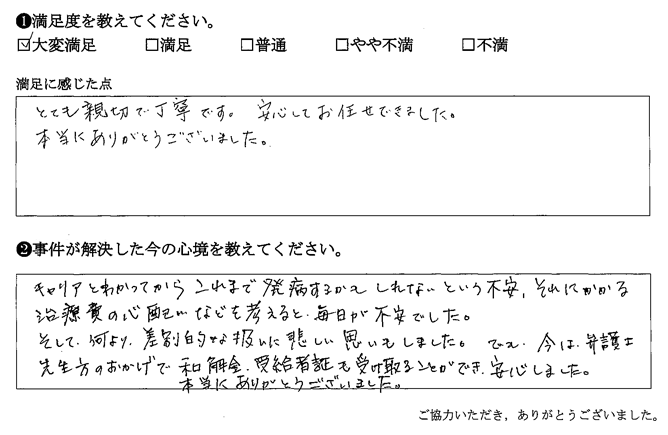 ❶満足度を教えてください。
☑大変満足 □満足 □普通 □やや不満 □不満
満足に感じた点
とても親切で丁寧です。安心してお任せできました。
本当にありがとうございました。
❷事件が解決した今の心境を教えてください。
キャリアとわかってから これまで発病するかもしれないという不安、それにかかる
治療費の心配いなどを考えると、毎日が不安でした。
そして、何より、差別的な扱いに悲しい思いもしました。でも、今は、弁護士
先生方のおかげで和解金、受給者証も受け取ることができ、安心しました。
本当にありがとうございました。
ご協力いただき、ありがとうございました。